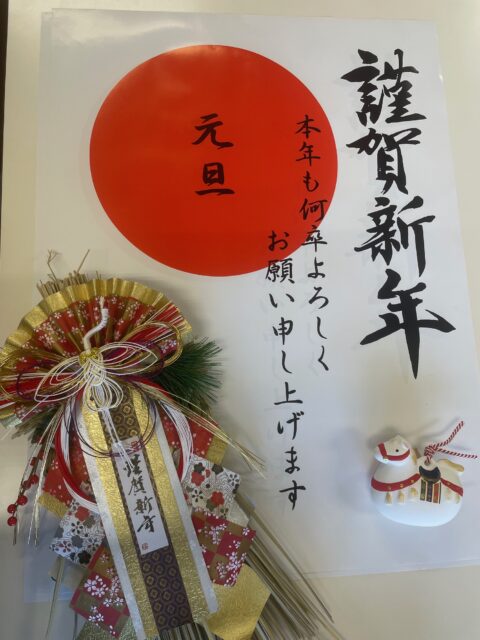 謹賀新年
本年も何卒よろしく
お願い申し上げます
元旦
謹賀新年